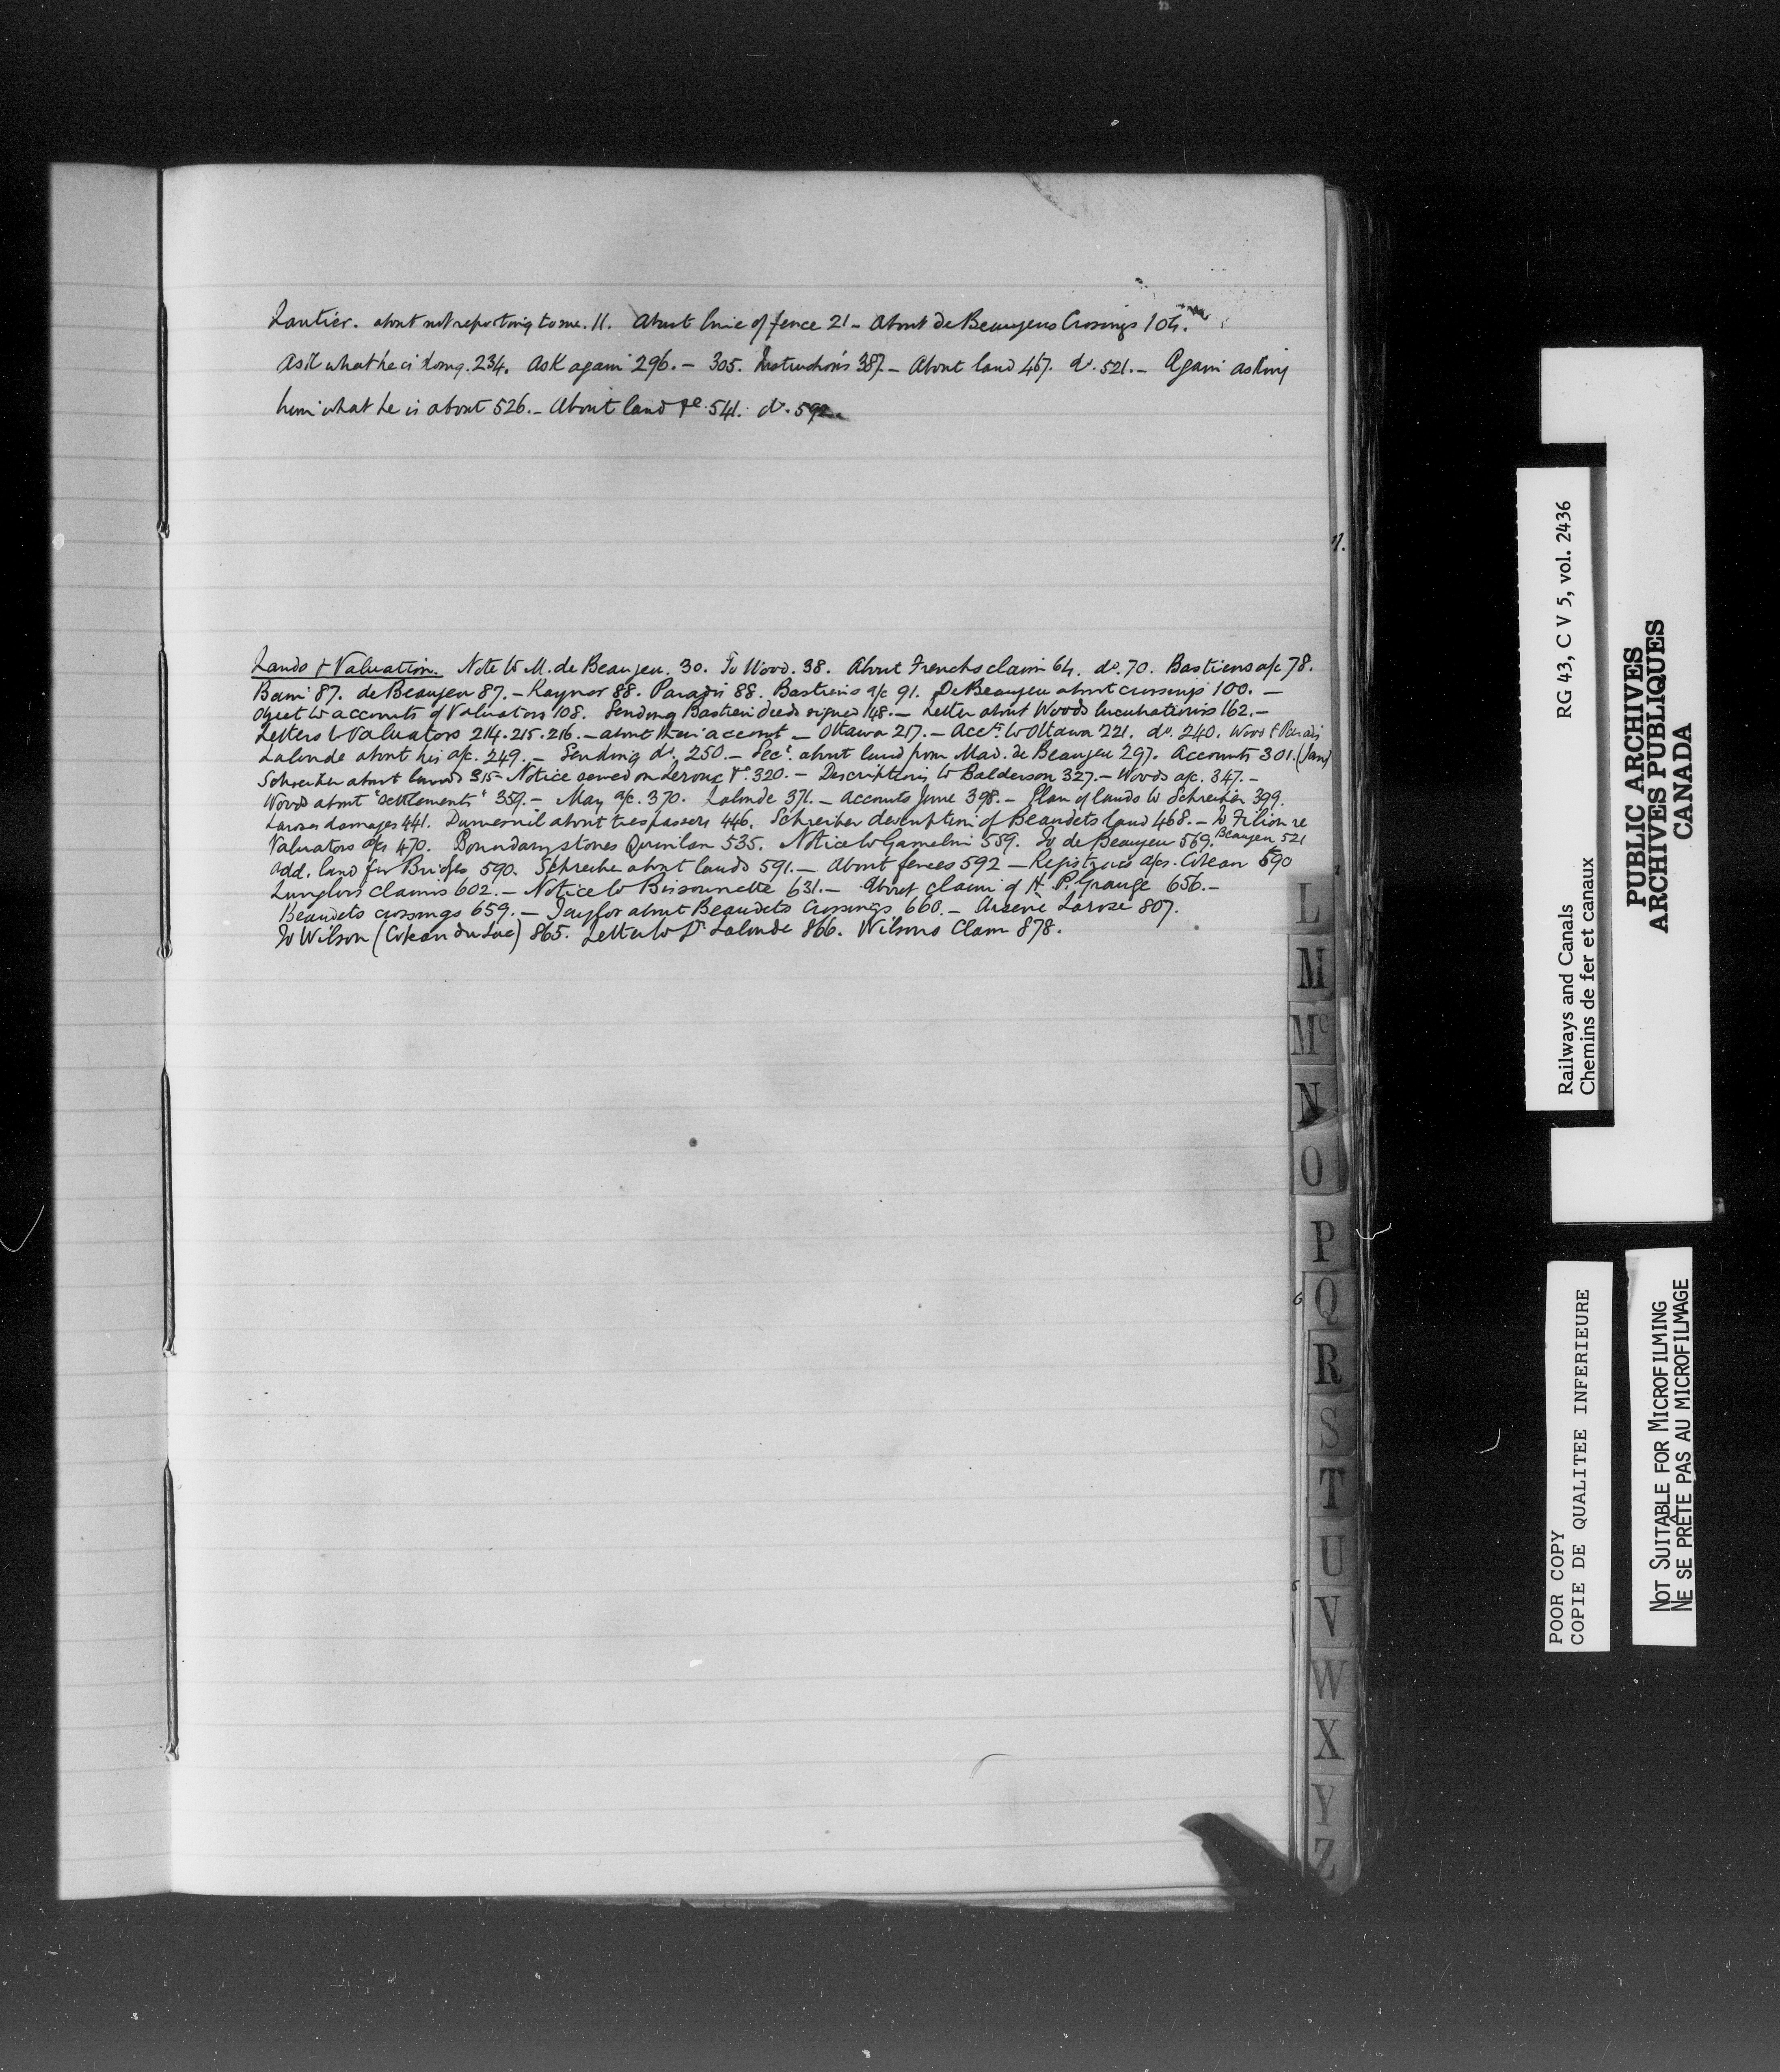 Lantier. about not reporting to me. 11. About line of fence 21 - About de Beaujeus Crossings 104.
Ask what he is doing. 234. Ask again 296. - 305. Instructions 387. - About land 467. do. 521. - Again asking
him what he is about 526. - About land &c. 541. do. 592.
Lands & Valuation. Note to M. de Beaujeu. 30. To Wood. 38. About Frenchs claim 64. do. 70. Bastiens a/c 78.
Bain 87. de Beaujeu 87. - Raynor 88. Paradis 88. Bastiens a/c 91. De Beaujeu about crossings 100. -
Object to accounts of Valuators 108. Sending Bastien deeds signed 148. - Letter about Woods lucubrations 162. -
Letters to Valuators 214. 215. 216. - about their account - Ottawa 217. - Accts. to Ottawa 221. do. 240. Wood & Paradis
Lalonde about his a/c. 249. - Sending do. 250. - Secy. about land from Mad. de Beaujeu 297. Accounts 301. (Jan)
Schreiber about lands 315 - Notice served on Leroux &c. 320. - Descriptions to Balderson 327. - Woods a/c. 347. -
Woods about "settlements" 359. - May a/c. 370. Lalonde 371. - Accounts June 398. - Plan of lands to Schreiber 399.
Laroses damages 441. Dumesnil about trespassers 446. Schreiber description of Beaudets land 468. - To Filion re
Valuators a/cs 470. Boundary stones Quinlan 535. Notice to Gamelin 559. To de Beaujeu 569. Beaujeu 521
Add. land for Bridges 590. Schreiber about lands 591. - About fences 592 - Registrars a/cs. Coteau 590
Langlois claims 602. - Notice to Bissonnette 631. - About claim of H. P. Grange 656. -
Beaudets crossings 659. - Taylor about Beaudets Crossings 660. - Arsene Larose 807.
To Wilson (Coteau du Lac) 865. Letter to Dr Lalonde 866. Wilsons Claim 878.
L
M
Mc
N
O
P
Q
R
S
T
U
V
W
X
Y
Z
RG 43, C V 5, vol. 2436
Railways and Canals
Chemins de fer et canaux
PUBLIC ARCHIVES
ARCHIVES PUBLIQUES
CANADA
POOR COPY
COPIE DE QUALITEE INFERIEURE
NOT SUITABLE FOR MICROFILMING
NE SE PRÊTE PAS AU MICROFILMAGE